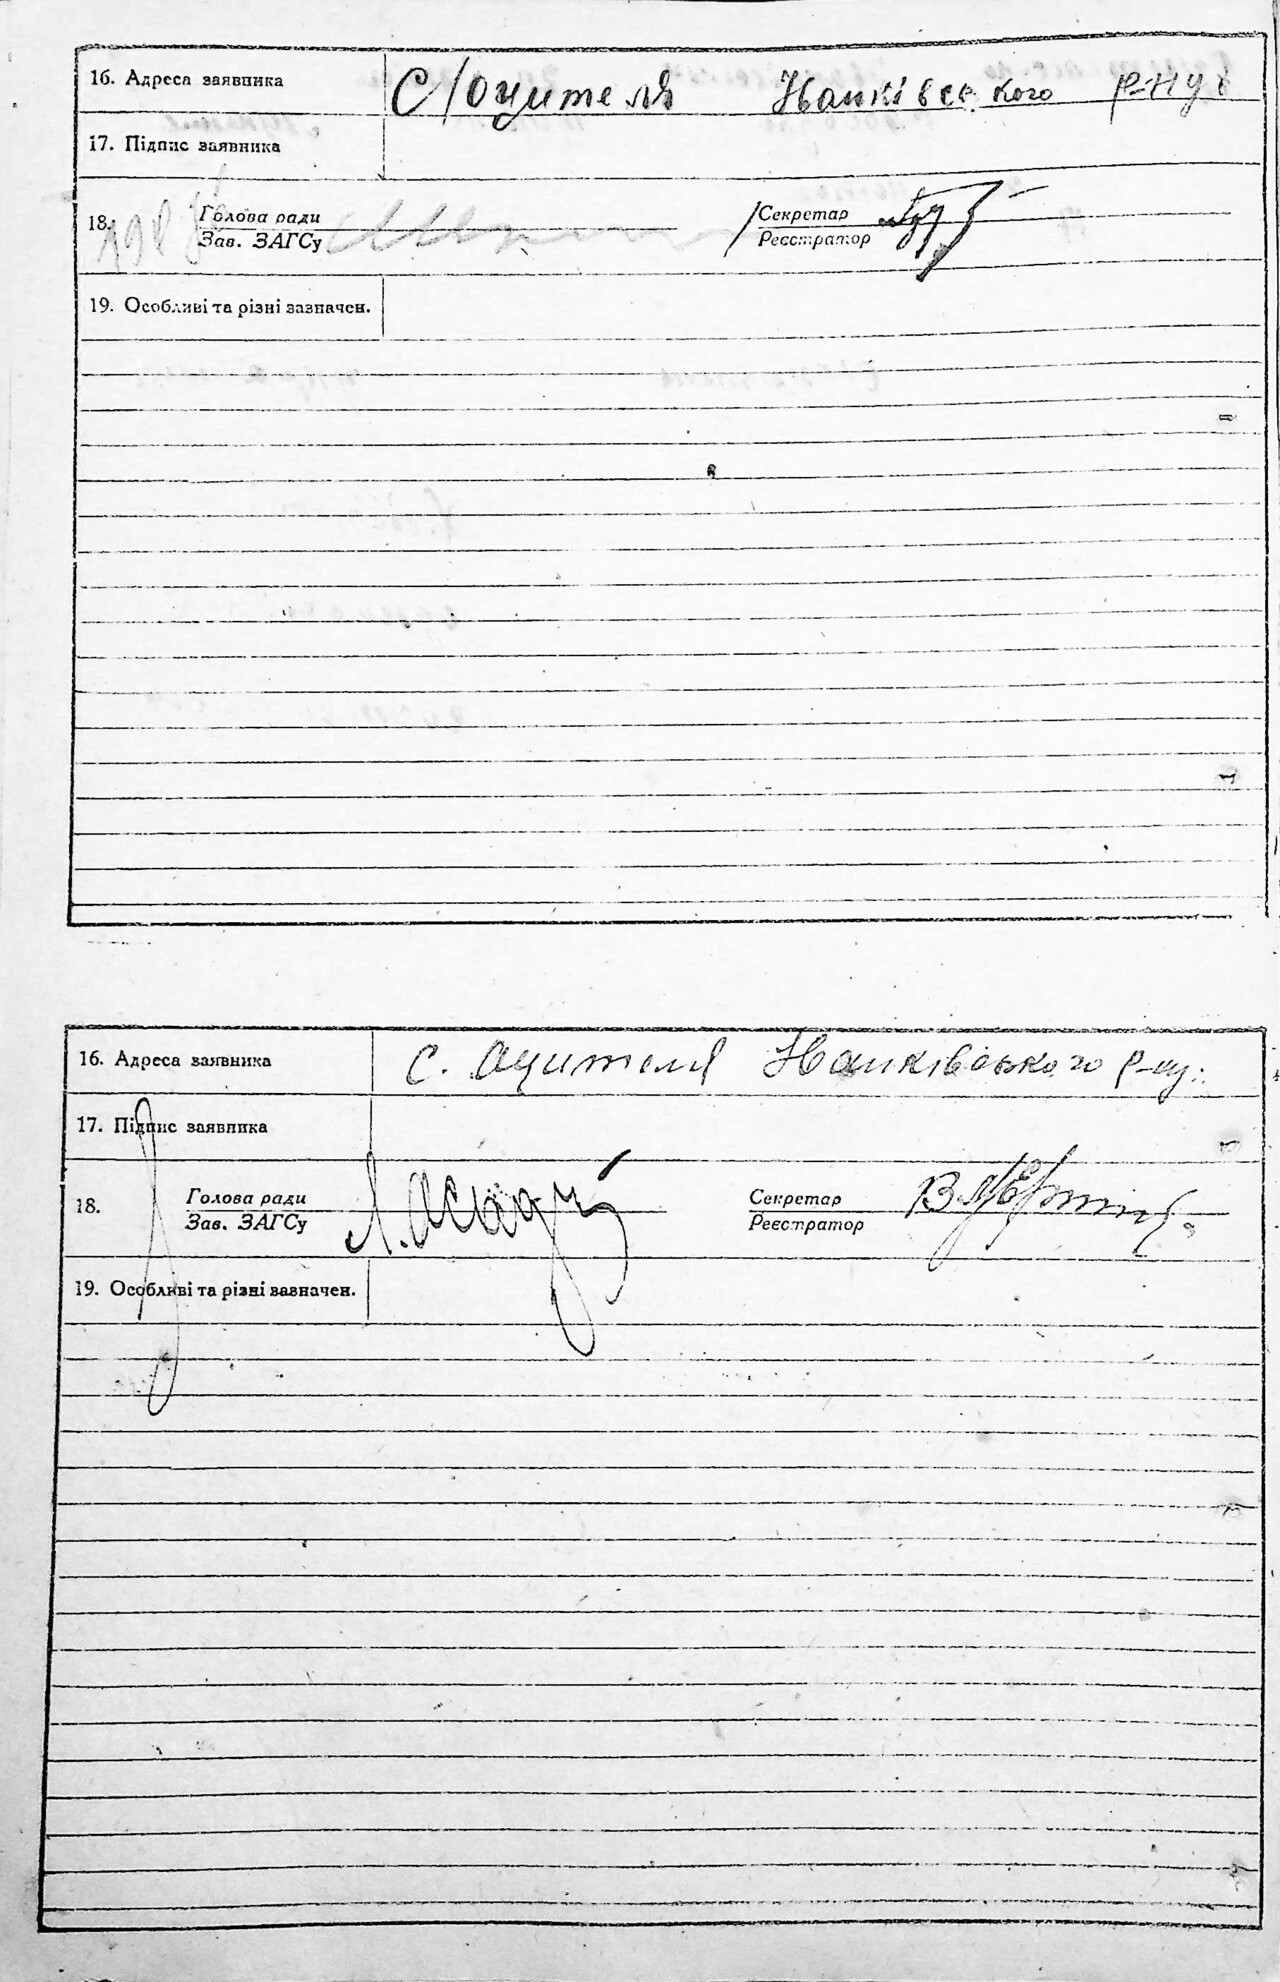 16. Адреса заявника С/Оцителя Іванківського р-ну
17. Підпис заявника
18. Голова ради Секретар
Зав. ЗАГСу Реєстратор
19. Особливі та різні зазначен.
16. Адреса заявника с. Оцителя Іванківського р-ну.
17. Підпис заявника
18. Голова ради Секретар
Зав. ЗАГСу Реєстратор
19. Особливі та різні зазначен.